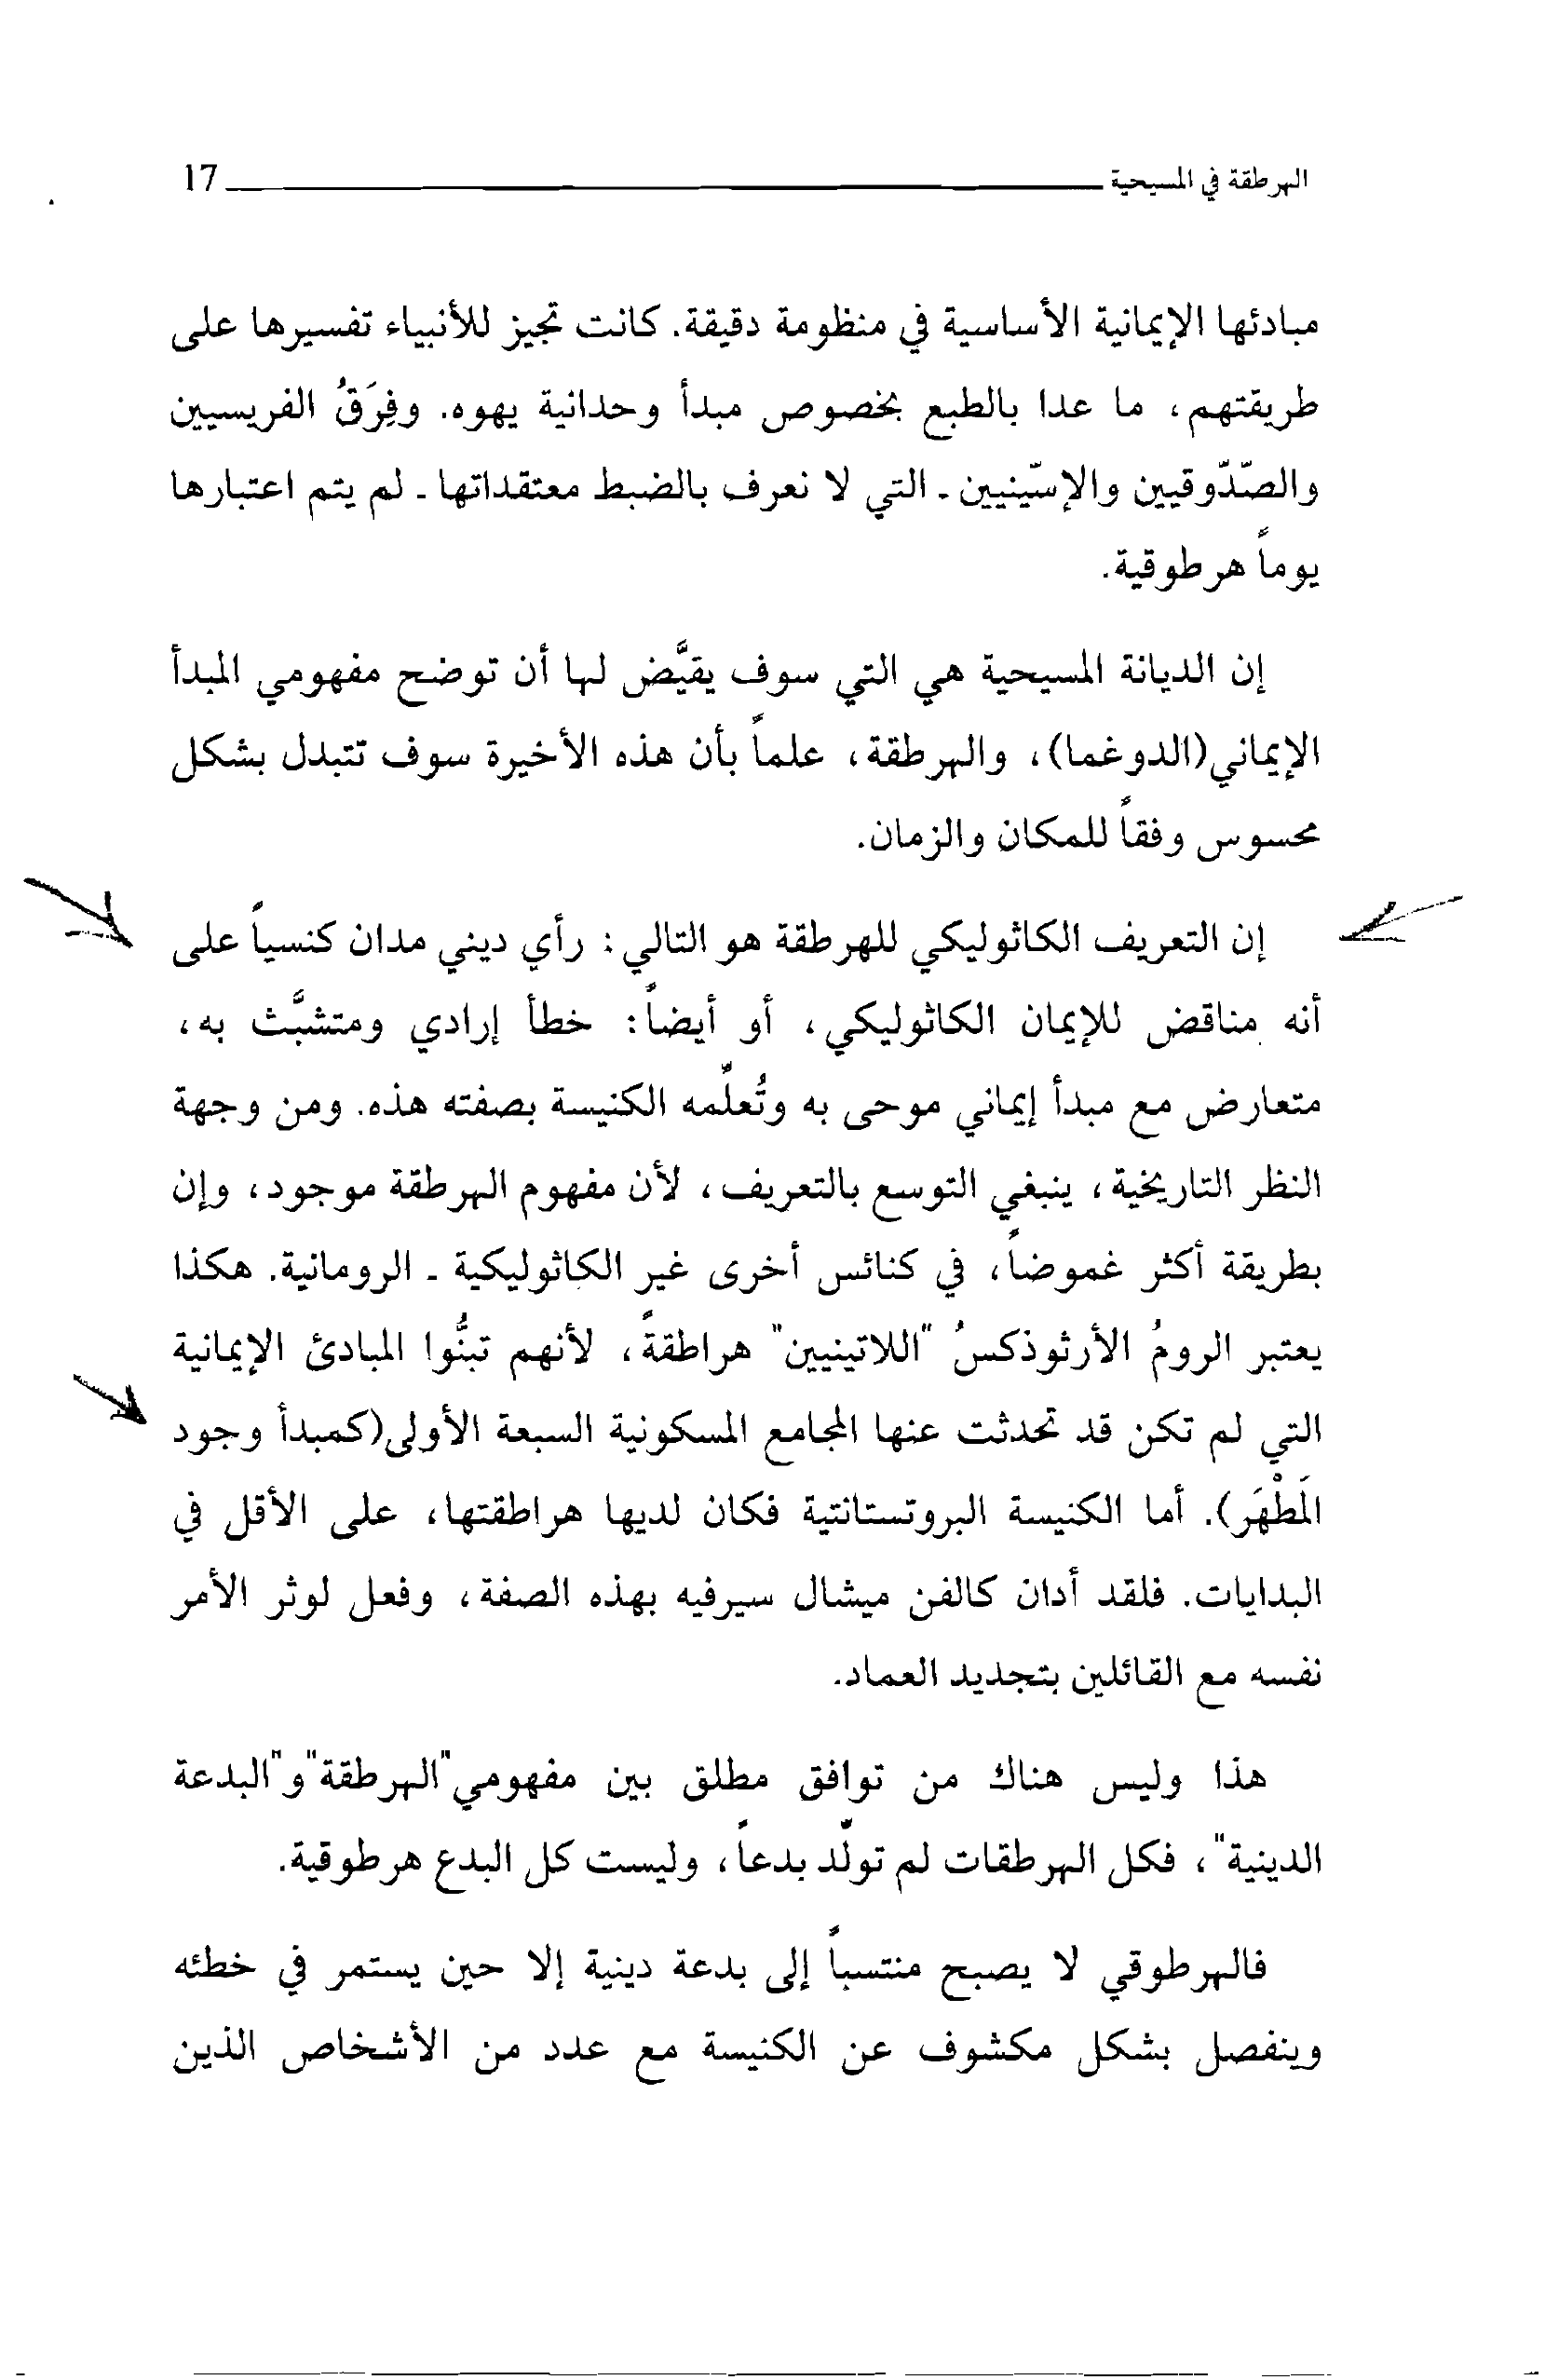 الهرطقة في المسيحية 17
مبادئها الإيمانية الأساسية في منظومة دقيقة. كانت تجيز للأنبياء تفسيرها على
طريقتهم، ما عدا بالطبع بخصوص مبدأ وحدانية يهوه. وفِرَقُ الفريسيين
والصّدّوقيين والإسّينيين - التي لا نعرف بالضبط معتقداتها - لم يتم اعتبارها
يوماً هرطوقية.
إن الديانة المسيحية هي التي سوف يقيَّض لها أن توضح مفهومي المبدأ
الإيماني(الدوغما)، والهرطقة، علماً بأن هذه الأخيرة سوف تتبدل بشكل
محسوس وفقاً للمكان والزمان.
إن التعريف الكاثوليكي للهرطقة هو التالي: رأي ديني مدان كنسياً على
أنه مناقض للإيمان الكاثوليكي، أو أيضاً: خطأ إرادي ومتشبَّث به،
متعارض مع مبدأ إيماني موحى به وتُعلّمه الكنيسة بصفته هذه. ومن وجهة
النظر التاريخية، ينبغي التوسع بالتعريف، لأن مفهوم الهرطقة موجود، وإن
بطريقة أكثر غموضاً، في كنائس أخرى غير الكاثوليكية - الرومانية. هكذا
يعتبر الرومُ الأرثوذكسُ "اللاتينيين" هراطقةً، لأنهم تبنُّوا المبادئ الإيمانية
التي لم تكن قد تحدثت عنها المجامع المسكونية السبعة الأولى(كمبدأ وجود
المَطْهَر). أما الكنيسة البروتستانتية فكان لديها هراطقتها، على الأقل في
البدايات. فلقد أدان كالفن ميشال سيرفيه بهذه الصفة، وفعل لوثر الأمر
نفسه مع القائلين بتجديد العماد.
هذا وليس هناك من توافق مطلق بين مفهومي"الهرطقة"و"البدعة
الدينية"، فكل الهرطقات لم تولّد بدعاً، وليست كل البدع هرطوقية.
فالهرطوقي لا يصبح منتسباً إلى بدعة دينية إلا حين يستمر في خطئه
وينفصل بشكل مكشوف عن الكنيسة مع عدد من الأشخاص الذين